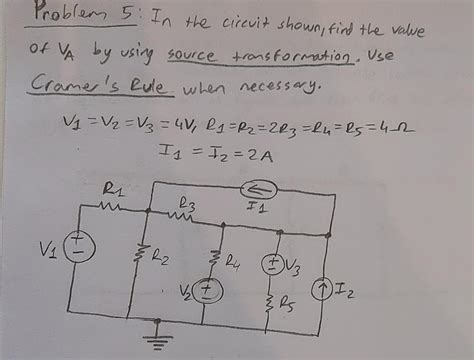 Problem 5: In the circuit shown, find the value
of VA by using source transformation. Use
Cramer's Rule when necessary.
V1 = V2 = V3 = 4V, R1 = R2 = 2R3 = R4 = R5 = 4 Ω
I1 = I2 = 2A
R1
R3
I1
V1
R2
R4
V3
V2
R5
I2